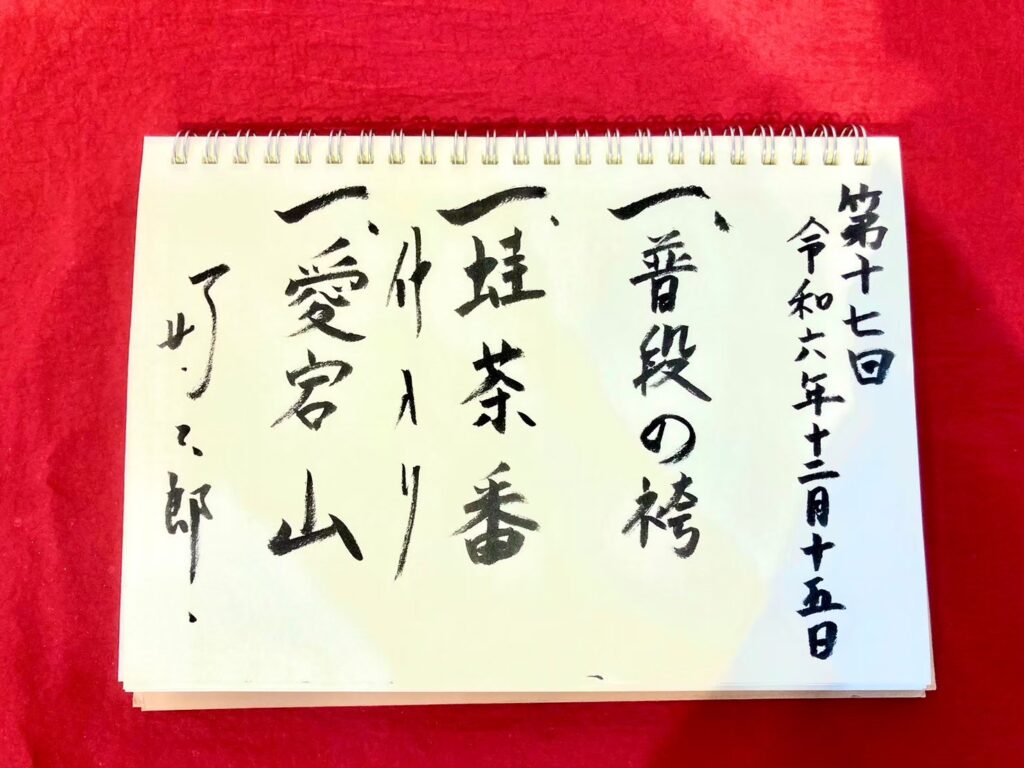 第十七回
令和六年十二月十五日
一、普段の袴
一、蛙茶番
仲入り
一、愛宕山
好二郎